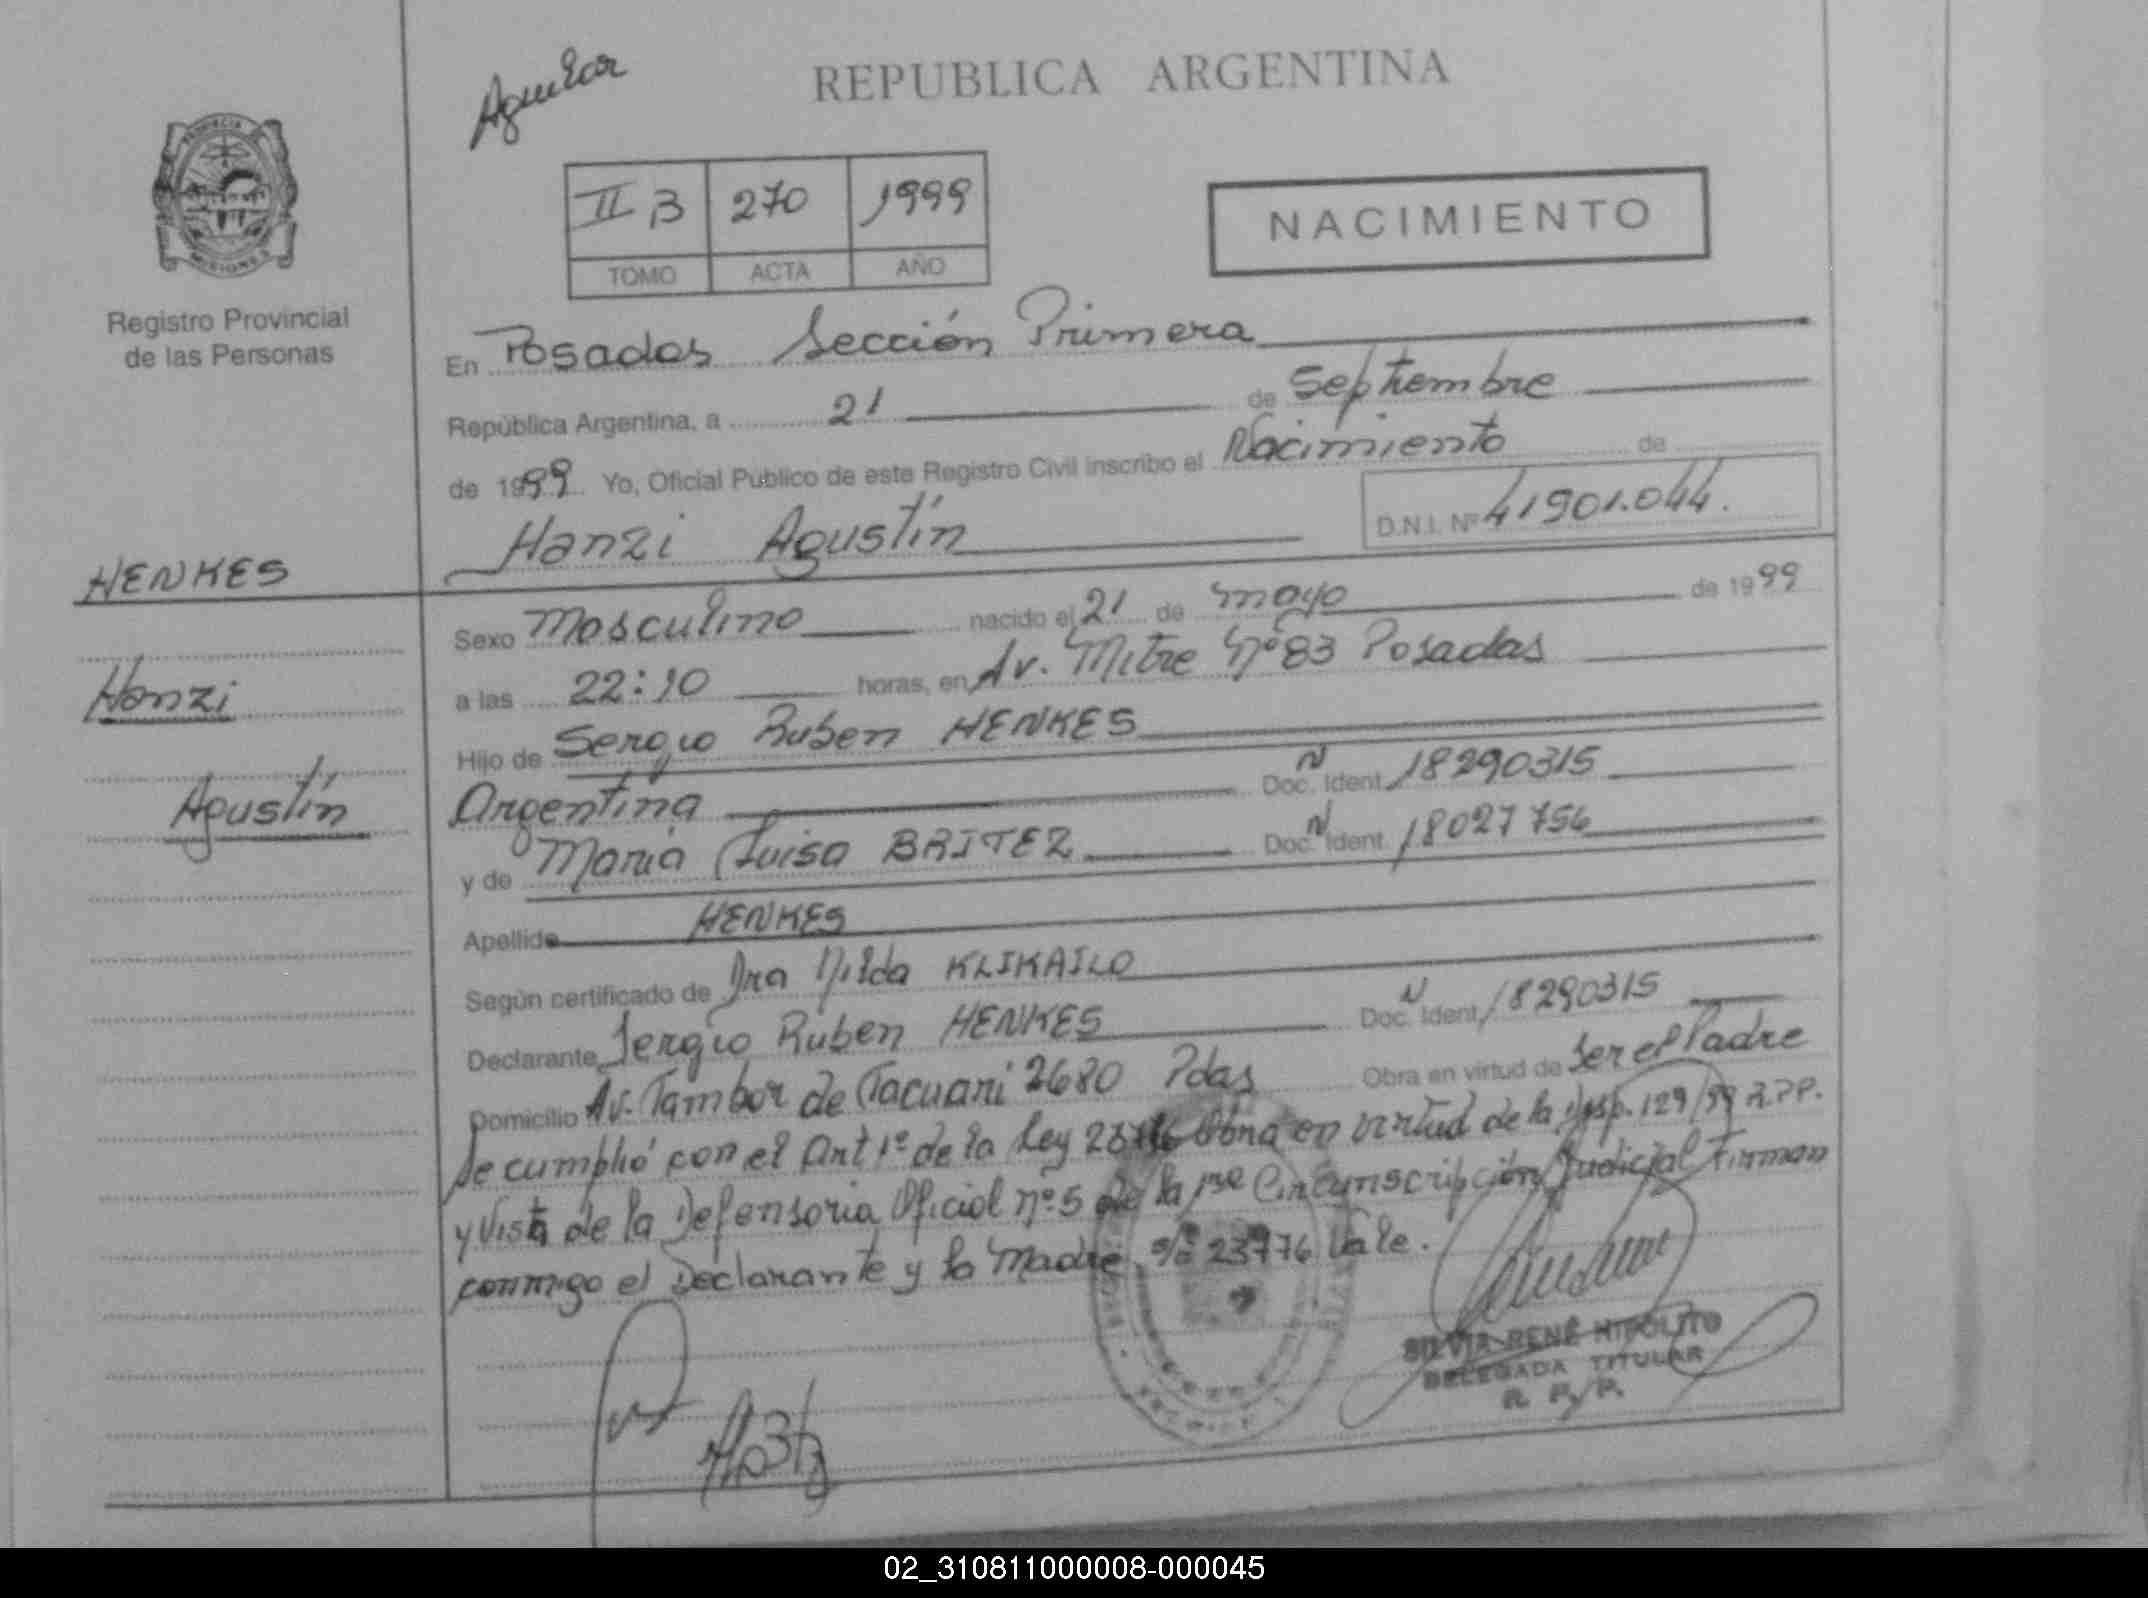 Aguilar
REPUBLICA ARGENTINA
PROVINCIA DE
MISIONES
II B 270 1999
TOMO ACTA AÑO
NACIMIENTO
Registro Provincial
de las Personas
En Posadas Sección Primera
República Argentina, a 21 de Septiembre
de 1999 Yo, Oficial Público de este Registro Civil inscribo el Nacimiento de
Hanzi Agustín D.N.I. Nº 41901.044.
HENKES
Hanzi
Agustín
Sexo Masculino nacido el 21 de mayo de 1999
a las 22:10 horas, en Av. Mitre Nº 83 Posadas
Hijo de Sergio Ruben HENKES
Argentina Doc. N Ident. 18290315
y de Maria Luisa BRITEZ Doc. N Ident. 18027756
Apellido HENKES
Según certificado de Dra Nilda KLIKAILO
Declarante Sergio Ruben HENKES Doc. N Ident. 18290315
Domicilio Av. Tambor de Tacuari 2680 Pdas Obra en virtud de Ser el Padre
Se cumplió con el Art 1º de la Ley 23776 Obra en virtud de la Disp. 129/99 R.P.P.
y Vista de la Defensoria Oficial Nº 5 de la 1ra Circunscripción Judicial Firman
conmigo el Declarante y la Madre. s/r 23776 Vale.
SILVIA RENÉ HIPÓLITO
DELEGADA TITULAR
R. P. P.
02_310811000008-000045